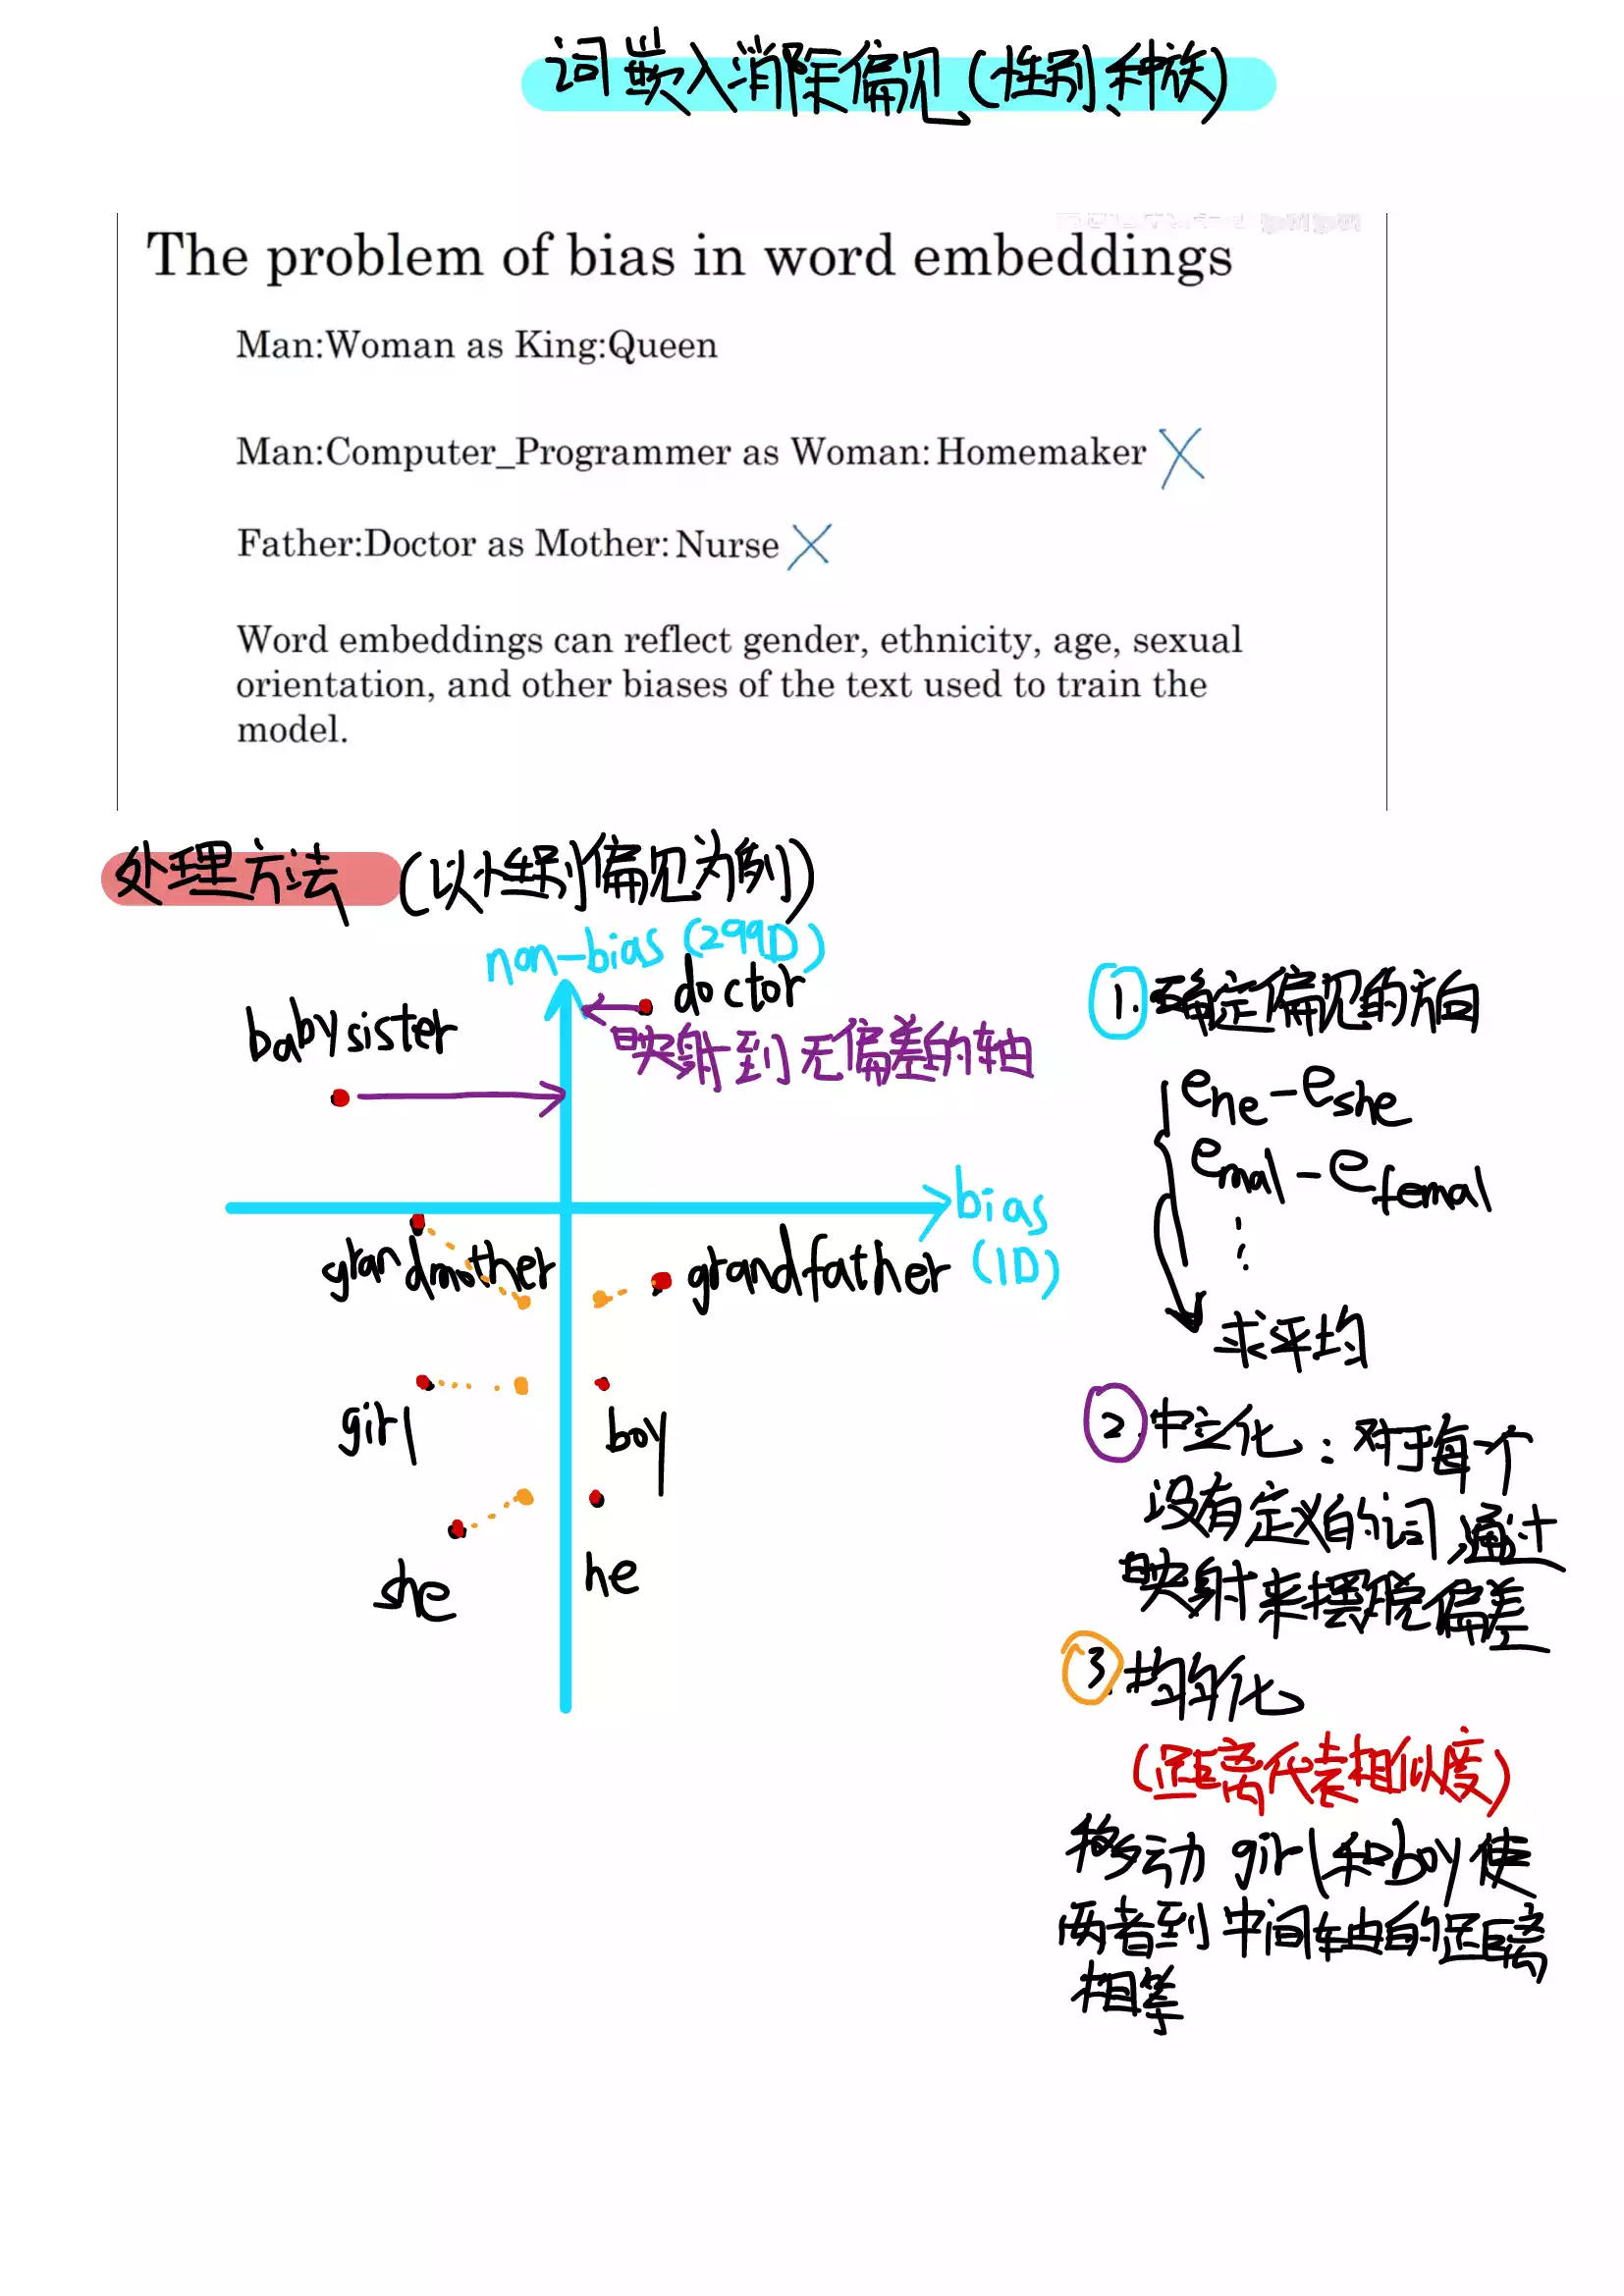 词嵌入消除偏见(性别、种族)
The problem of bias in word embeddings
Man:Woman as King:Queen
Man:Computer_Programmer as Woman:Homemaker
Father:Doctor as Mother:Nurse
Word embeddings can reflect gender, ethnicity, age, sexual
orientation, and other biases of the text used to train the
model.
处理方法 (以性别偏见为例)
non-bias (299D)
doctor
babysister
映射到无偏差的轴
bias
(1D)
grandmother
grandfather
girl
boy
she
he
1. 确定偏见的方向
ehe - eshe
emal - efemal
⋮
求平均
2. 中立化: 对于每个
没有定义的词,通过
映射来摆脱偏差
3. 均匀化
(距离代表相似度)
移动 girl和boy 使
两者到中间轴的距离
相等